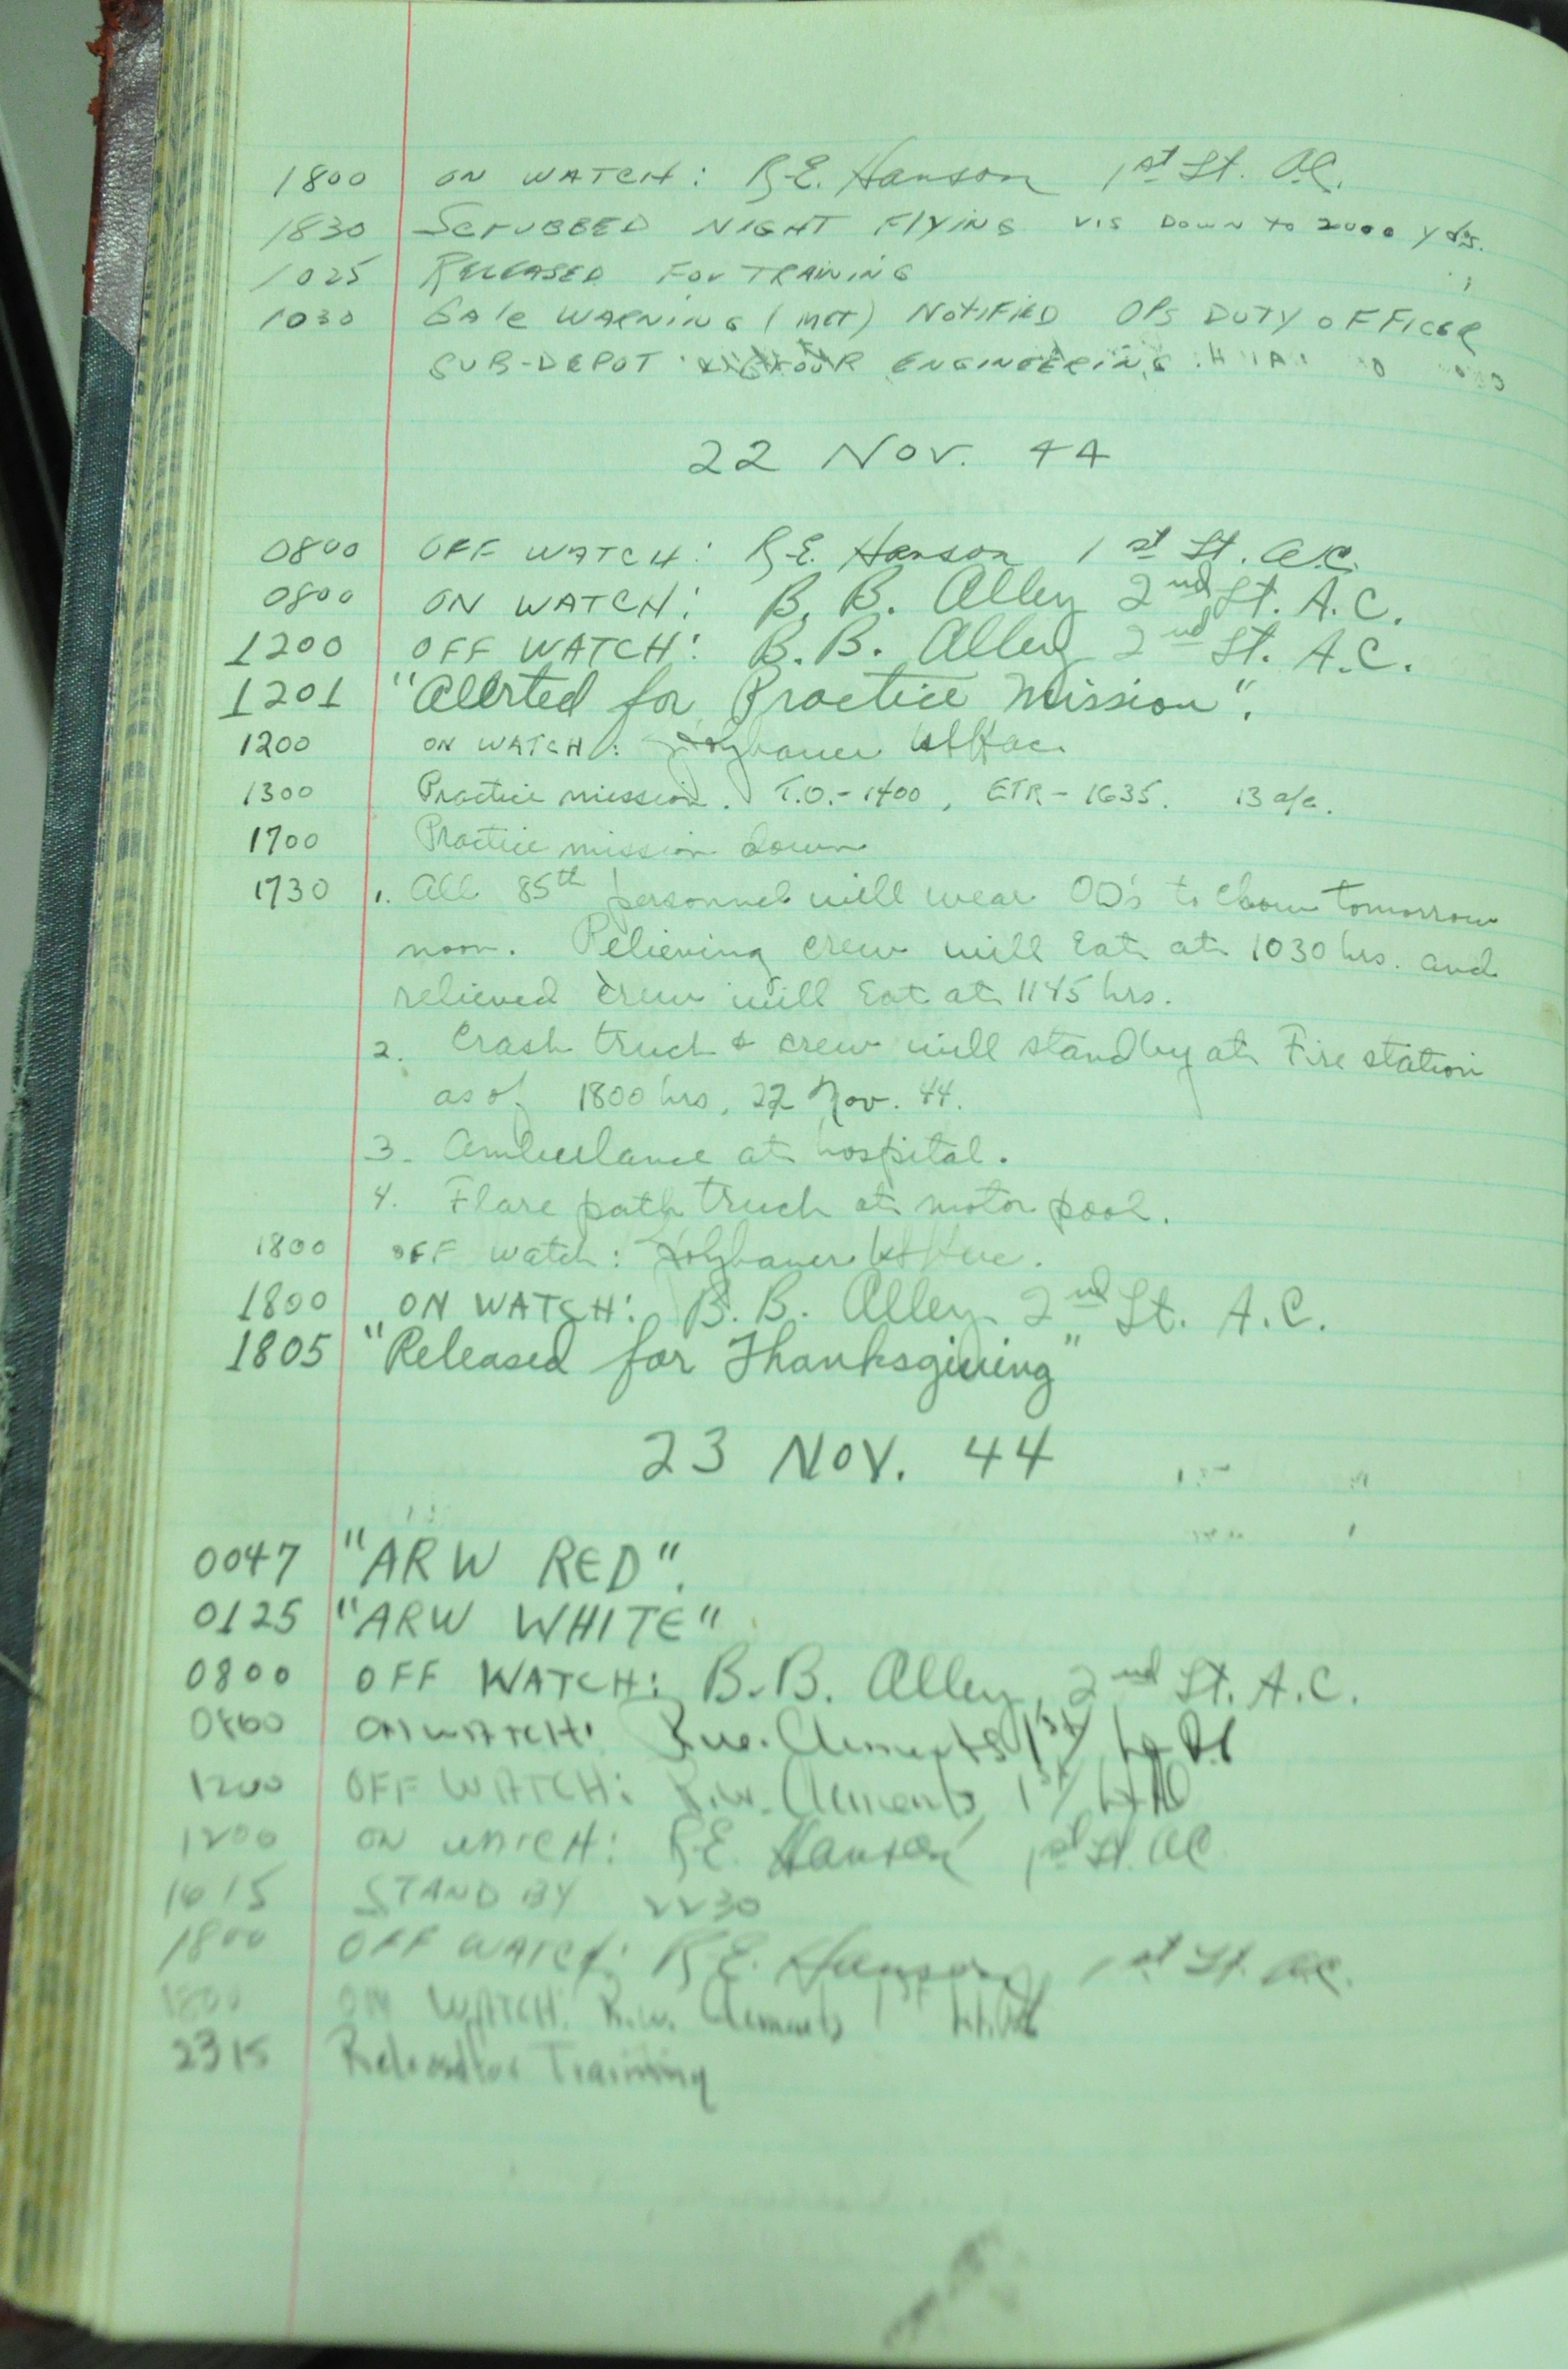 1800 ON WATCH: R.E. Hanson 1st Lt. A.C.
1830 SCRUBBED NIGHT FLYING VIS DOWN to 2000 yds.
1025 RELEASED FOR TRAINING
1030 GALE WARNING (MET) NOTIFIED OPS DUTY OFFICER
SUB-DEPOT ENGINEERING
22 Nov. 44
0800 OFF WATCH: R.E. Hanson 1st Lt. A.C.
0800 ON WATCH: B. B. Alley 2nd Lt. A.C.
1200 OFF WATCH: B.B. Alley 2nd Lt. A.C.
1201 "Alerted for Practice Mission".
1200 ON WATCH:
1300 Practice mission. T.O.- 1400, ETR - 1635. 13 a/c.
1700 Practice mission down
1730 1. All 85th personnel will wear OD's to Chow tomorrow
noon. Relieving crew will Eat at 1030 hrs. and
relieved crew will Eat at 1145 hrs.
2. Crash truck & crew will standby at Fire station
as of 1800 hrs, 22 Nov. 44.
3. Ambulance at hospital.
4. Flare path truck at motor pool.
1800 OFF watch:
1800 ON WATCH: B. B. Alley 2nd Lt. A.C.
1805 "Released for Thanksgiving"
23 NOV. 44
0047 "ARW RED".
0125 "ARW WHITE"
0800 OFF WATCH: B.B. Alley, 2nd Lt. A.C.
0800 ON WATCH: R.W. Clements 1st Lt AC
1200 OFF WATCH: R.W. Clements 1st Lt AC
1200 ON WATCH: R.E. Hanson 1st Lt. AC
1615 STAND BY 2230
1800 OFF WATCH: R.E. Hanson 1st Lt. A.C.
1800 ON WATCH: R.W. Clements 1st Lt. AC
2315 Released for Training